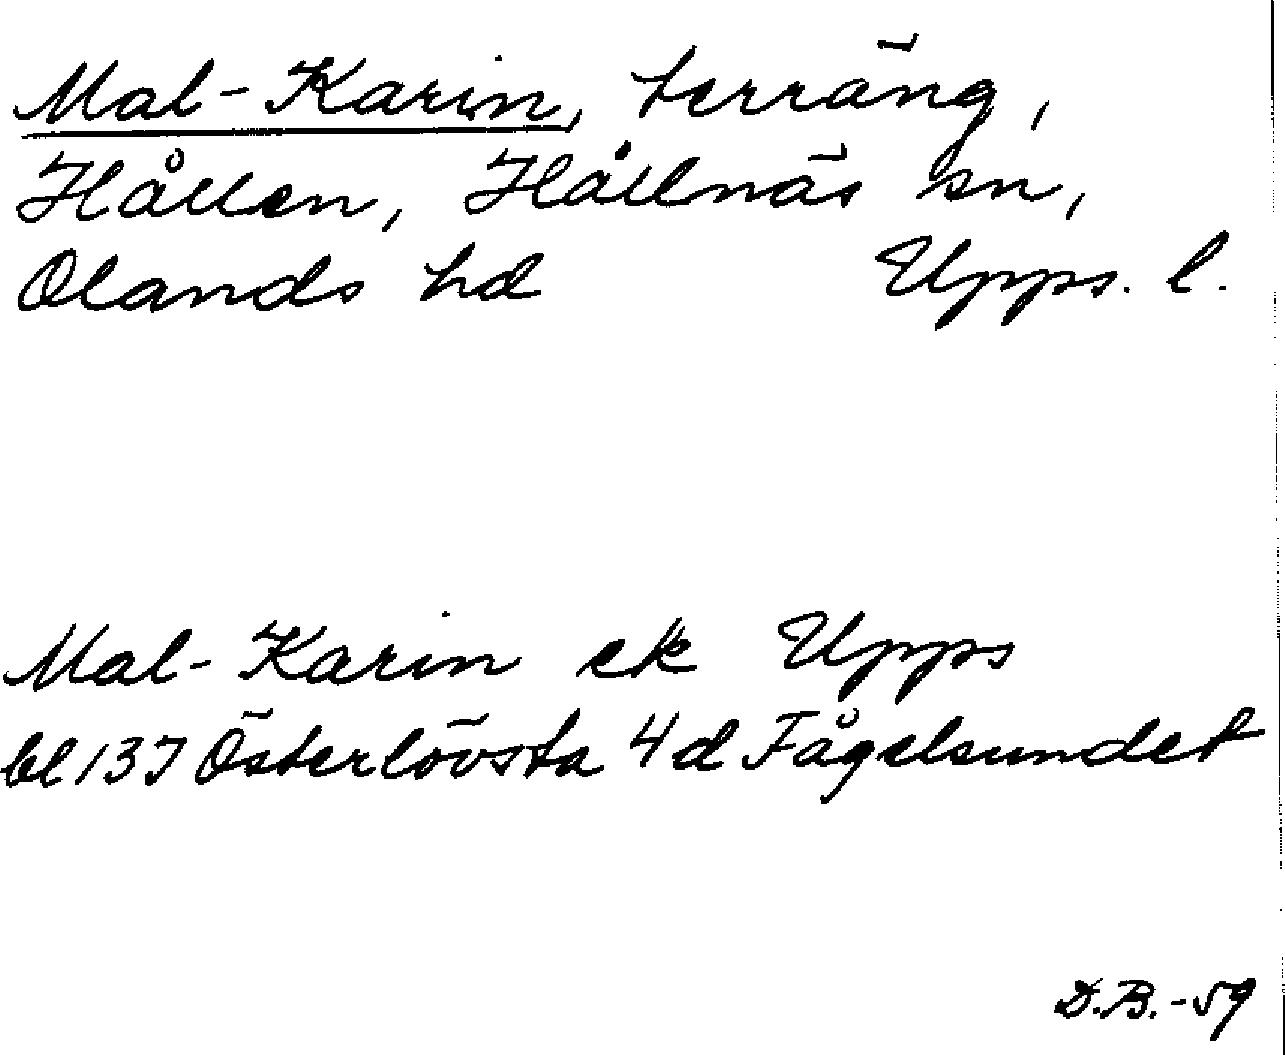 Mal-Karin, terräng,
Hållen, Hållnäs sn,
Olands hd Upps. l.
Mal-Karin ek Upps
bl 137 Österlövsta 4d Fågelsundet
D.B.-59